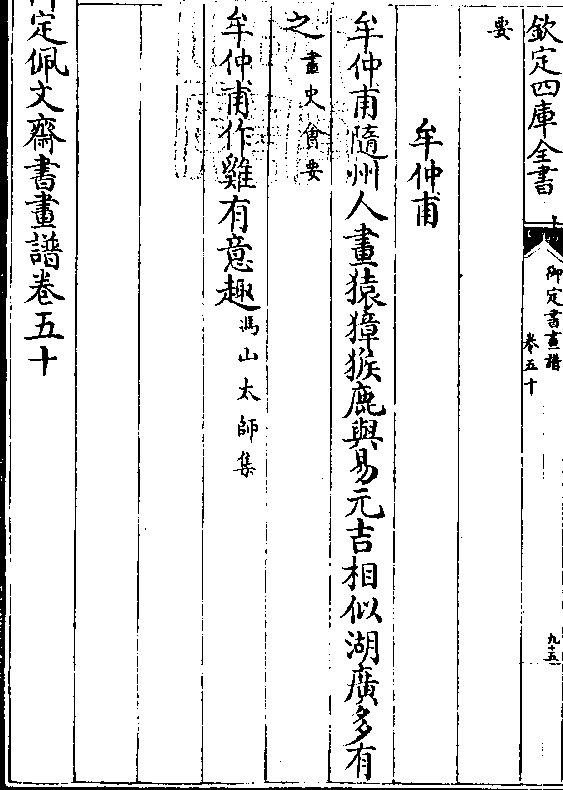 欽定四庫全書
御定書畫譜
卷五十
九十五
要
牟仲甫
牟仲甫隨州人畫猿獐猴鹿與易元吉相似湖廣多有
之畫史會要
牟仲甫作雞有意趣馮山太師集
定佩文齋書畫譜卷五十